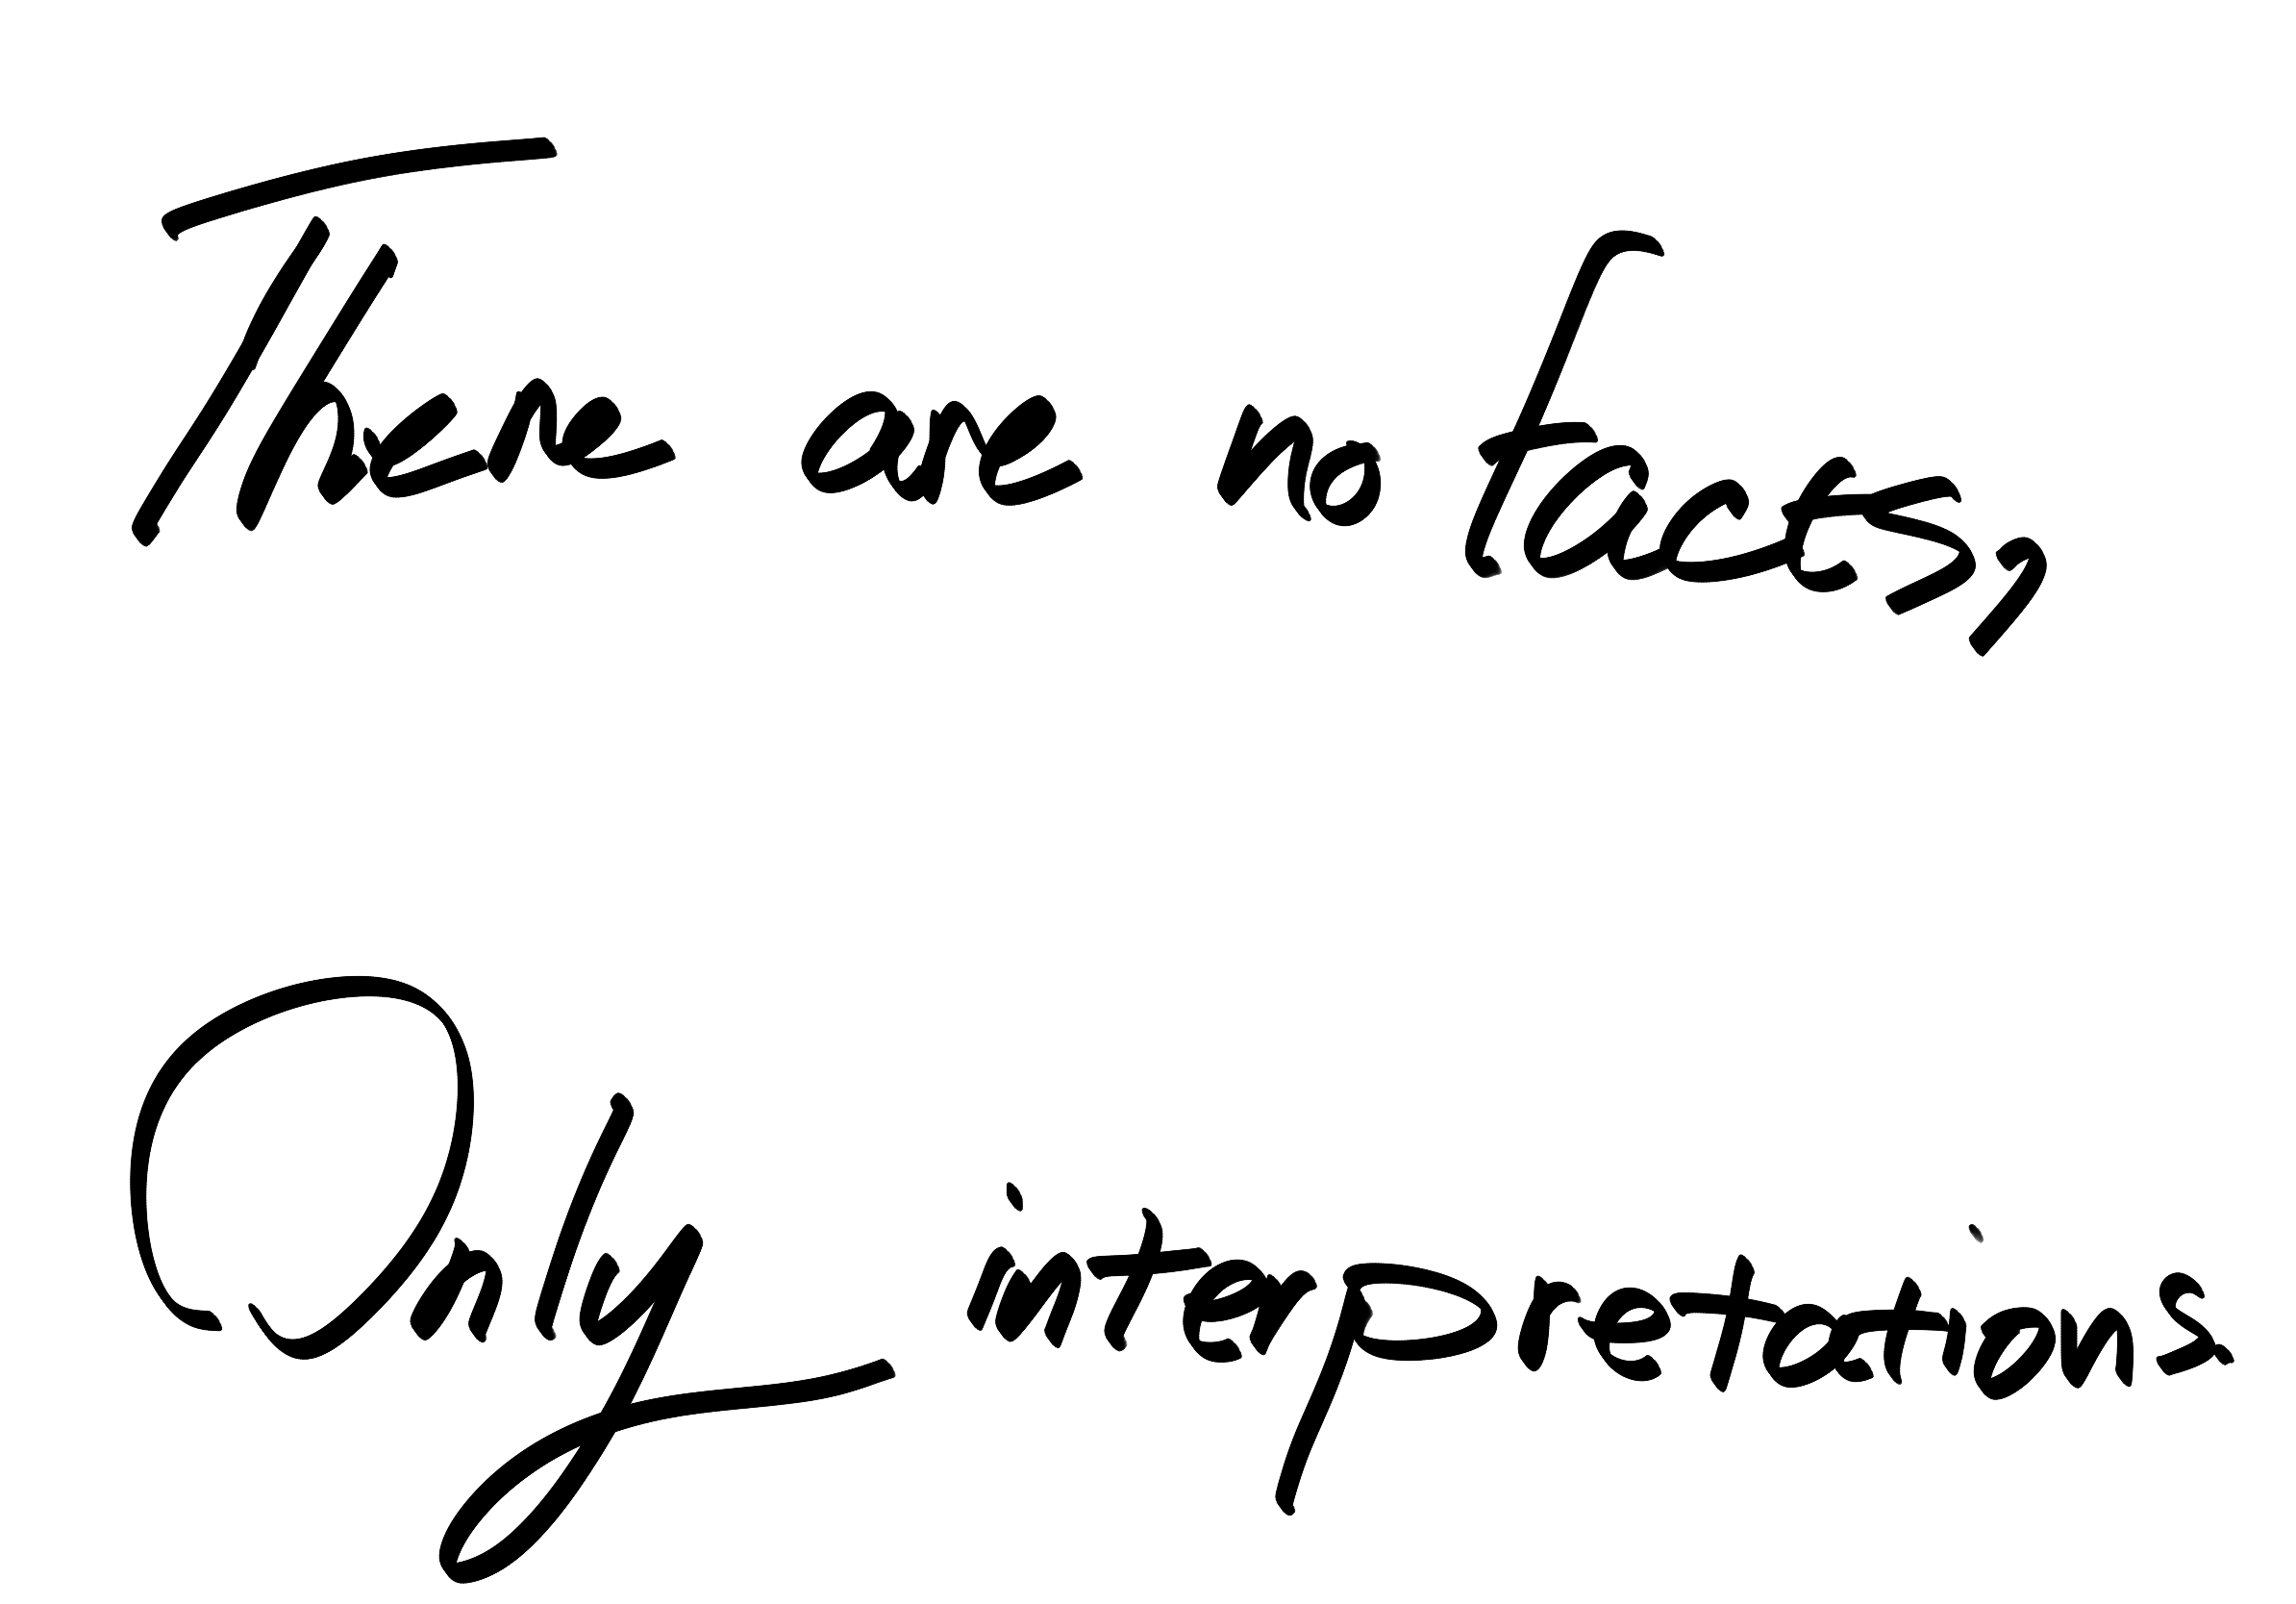 There are no facts,
Only interpretations.